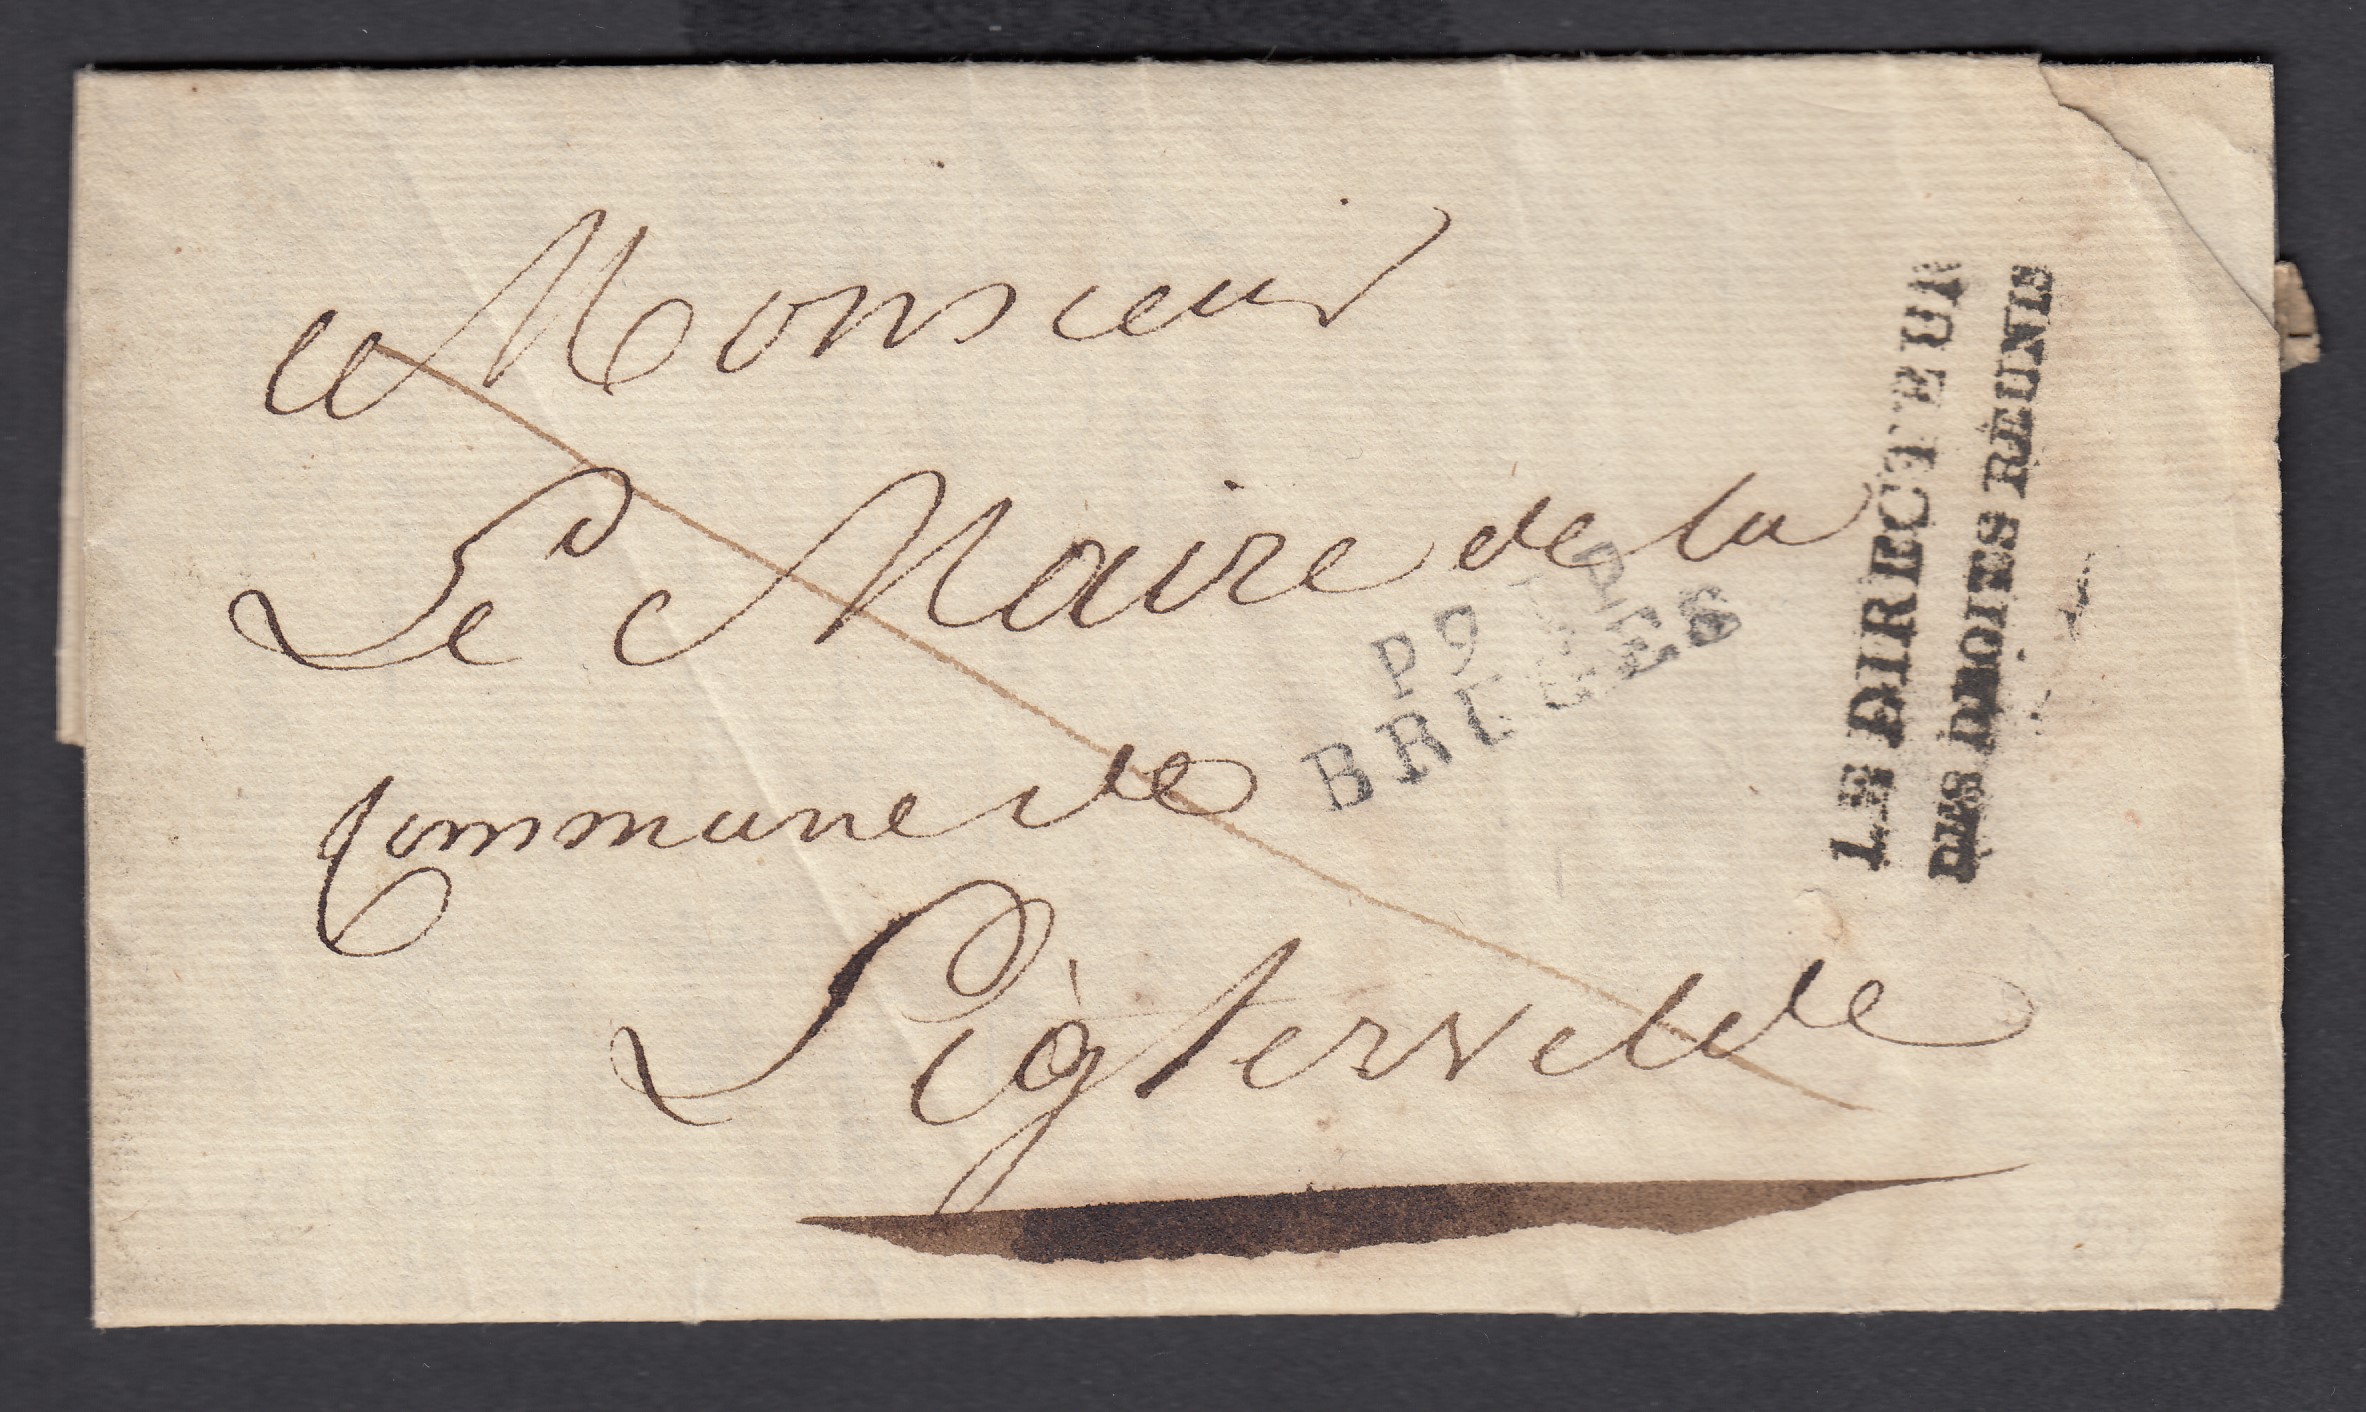 a Monsieur
Le Maire de la
Commune de
Ligtervelde
P 9 P
BRUGES
LE DIRECTEUR
DES DROITS REUNIS